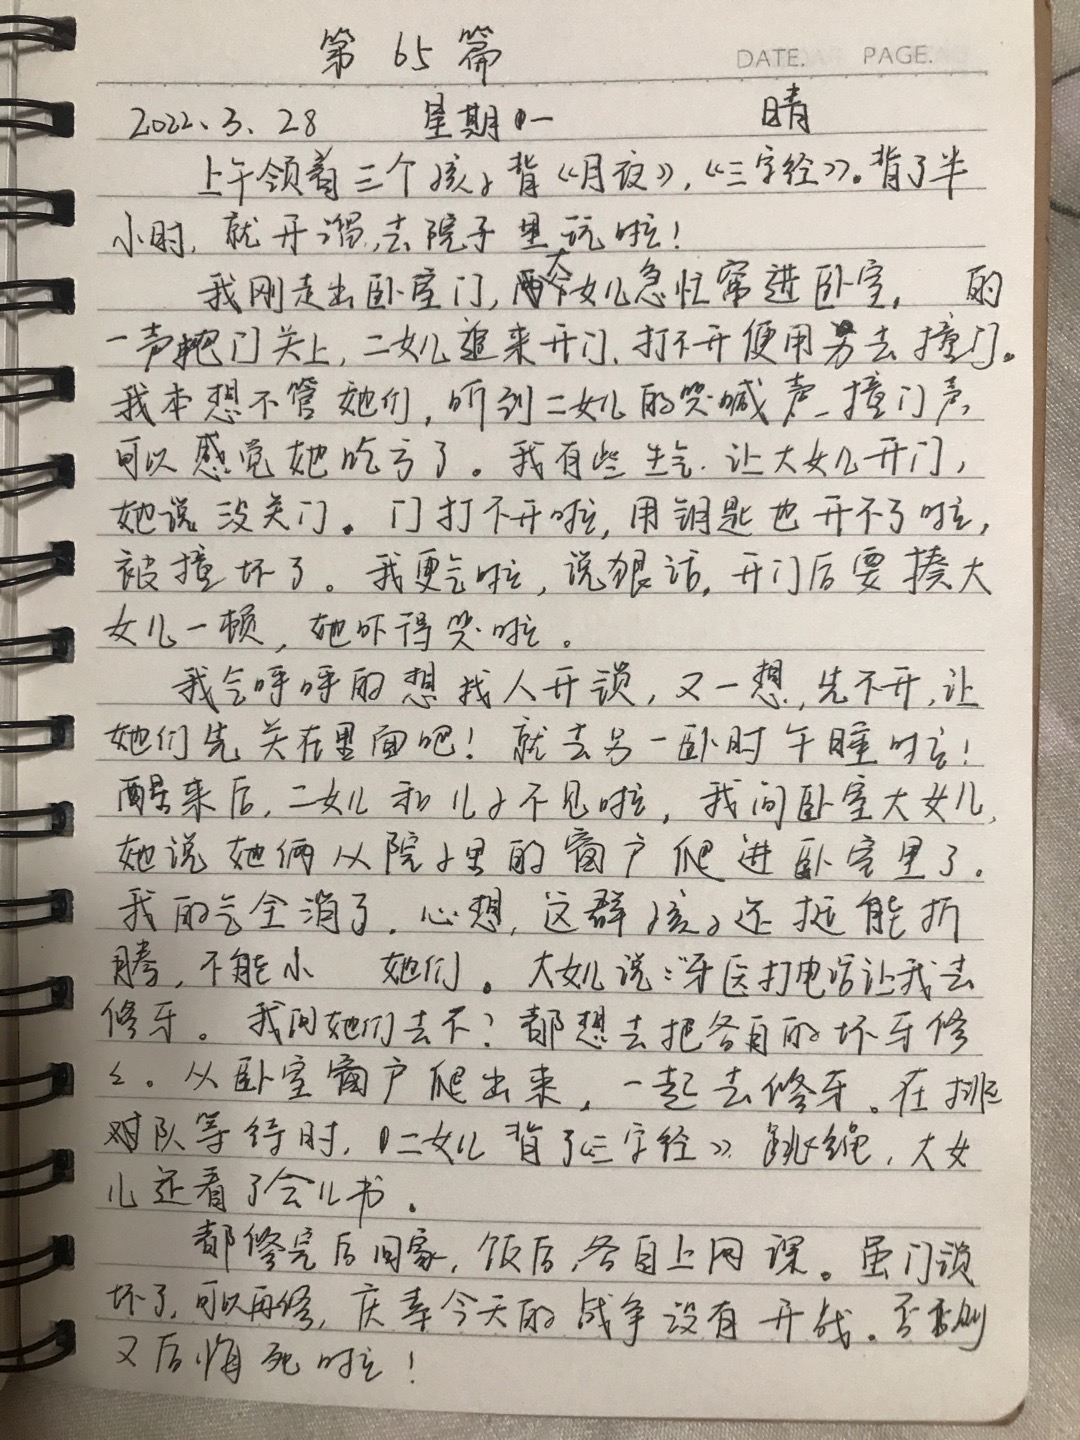 第 65 篇
DATE. PAGE.
2022.3.28 星期一 晴
上午领着三个孩子背《月夜》,《三字经》。背了半
小时,就开溜,去院子里玩啦!
我刚走出卧室门,大女儿急忙窜进卧室, 的
一声把门关上,二女儿追来开门,打不开便用劲去撞门。
我本想不管她们,听到二女儿的哭喊声、撞门声,
可以感觉她吃亏了。我有些生气.让大女儿开门,
她说没关门。门打不开啦,用钥匙也开不了啦,
被撞坏了。我更气啦,说狠话,开门后要揍大
女儿一顿,她吓得哭啦。
我气呼呼的想找人开锁,又一想,先不开,让
她们先关在里面吧!就去另一卧时午睡啦!
醒来后,二女儿和儿子不见啦,我问卧室大女儿,
她说她俩从院子里的窗户爬进卧室里了.
我的气全消了.心想,这群孩子还挺能折
腾,不能小 她们。大女儿说:牙医打电话让我去
修牙。我问她们去不?都想去把各自的坏牙修
修。从卧室窗户爬出来,一起去修牙。在排
队等待时,二女儿背了《三字经》跳绳,大女
儿还看了会儿书。
都修完后回家,饭后,各自上网课。虽门锁
坏了,可以再修,庆幸今天的战争没有开战。否则
又后悔死啦!